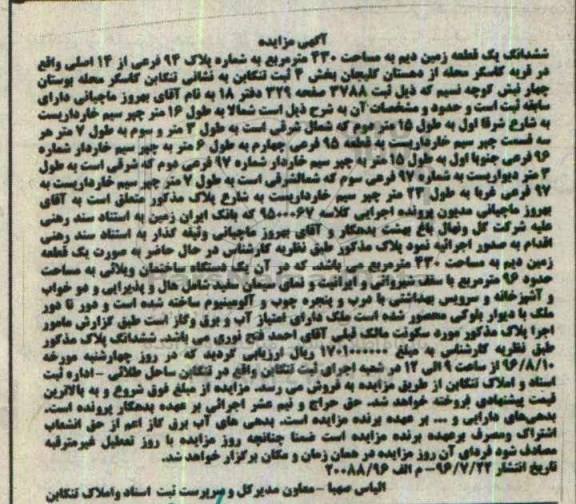 آگهی مزایده
ششدانگ یک قطعه زمین دیم به مساحت ۳۳۰ مترمربع به شماره پلاک ۹۴ فرعی از ۱۴ اصلی واقع
در قریه کاسگر محله از دهستان گلیجان بخش ۴ ثبت تنکابن به نشانی تنکابن کاسگر محله بوستان
چهار نبش کوچه نسیم که ذیل ثبت ۳۷۸۸ صفحه ۳۲۹ دفتر ۱۸ به نام آقای بهروز ماچیانی دارای
سابقه ثبت است و حدود و مشخصات آن به شرح ذیل است شمالا به طول ۱۶ متر چپر سیم خارداریست
به شارع شرقا اول به طول ۱۵ متر دوم که شمال شرقی است به طول ۳ متر و سوم به طول ۷ متر هر
سه قسمت چپر سیم خارداریست به قطعه ۹۵ فرعی چهارم به طول ۶ متر به چپر سیم خاردار شماره
۹۶ فرعی جنوبا اول به طول ۱۵ متر به چپر سیم خاردار شماره ۹۷ فرعی دوم که شرقی است به طول
۳ متر دیواریست به شماره ۹۷ فرعی سوم که شمالشرقی است به طول ۷ متر چپر سیم خارداریست به
۹۷ فرعی غربا به طول ۲۳ متر چپر سیم خارداریست به شارع پلاک مذکور متعلق است به آقای
بهروز ماچیانی مدیون پرونده اجرایی کلاسه ۹۵۰۰۰۶۷ که بانک ایران زمین به استناد سند رهنی
علیه شرکت گل ونهال باغ بهشت بدهکار و آقای بهروز ماچیانی وثیقه گذار به استناد سند رهنی
اقدام به صدور اجرائیه نمود پلاک مذکور طبق نظریه کارشناس در حال حاضر به صورت یک قطعه
زمین دیم به مساحت ۳۳۰ مترمربع می باشد. که در آن یک دستگاه ساختمان ویلائی به مساحت
حدود ۹۶ مترمربع با سقف شیروانی و ایرانیت و نمای سیمان سفید شامل هال و پذیرایی و دو خواب
و آشپزخانه و سرویس بهداشتی با درب و پنجره چوب و آلومینیوم ساخته شده است و دور تا دور
ملک با دیوار بلوکی محصور شده است ملک دارای امتیاز آب و برق وگاز است طبق گزارش مامور
اجرا پلاک مذکور مورد سکونت مالک قبلی آقای احمد فتح نوری می باشد. ششدانگ پلاک مذکور
طبق نظریه کارشناس به مبلغ ۱۷۰۱۰۰۰۰۰۰ ریال ارزیابی گردید که در روز چهارشنبه مورخه
۹۶/۸/۱۰ از ساعت ۹ الی ۱۲ در شعبه اجرای ثبت تنکابن واقع در تنکابن ساحل طلائی -اداره ثبت
اسناد و املاک تنکابن از طریق مزایده به فروش می رسد. مزایده از مبلغ فوق شروع و به بالاترین
قیمت پیشنهادی فروخته خواهد شد. حق حراج و نیم عشر اجرائی بر عهده بدهکار پرونده است.
بدهی‌های دارایی و ... بر عهده برنده مزایده است. بدهی های آب برق گاز اعم از حق انشعاب
اشتراک ومصرف برعهده برنده مزایده است ضمنا چنانچه روز مزایده با روز تعطیل غیرمترقبه
مصادف شود فردای آن روز مزایده در همان زمان و مکان برگزار خواهد شد.
تاریخ انتشار ۹۶/۷/۲۲- م الف ۲۰۰۸۸/۹۶
الیاس صهبا -معاون مدیرکل و سرپرست ثبت اسناد واملاک تنکابن